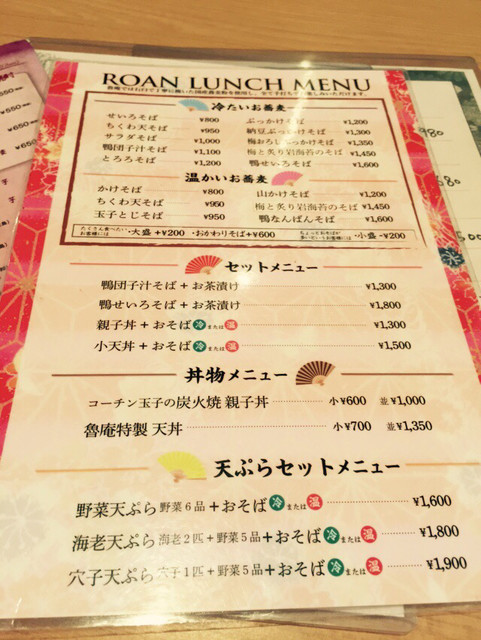 ROAN LUNCH MENU
冷たいお蕎麦
せいろそば ¥800
ちくわ天そば ¥950
サラダそば ¥1,000
鴨団子汁そば ¥1,100
とろろそば ¥1,200
ぶっかけそば ¥1,200
納豆ぶっかけそば ¥1,300
梅おろしぶっかけそば ¥1,350
梅と炙り岩海苔のそば ¥1,450
鴨せいろそば ¥1,600
温かいお蕎麦
かけそば ¥800
ちくわ天そば ¥950
玉子とじそば ¥950
山かけそば ¥1,200
梅と炙り岩海苔のそば ¥1,450
鴨なんばんそば ¥1,600
たくさん食べたいお客様には ・大盛+¥200 ・おかわりそば+¥600 ・小盛-¥200
セットメニュー
鴨団子汁そば+お茶漬け ¥1,300
鴨せいろそば+お茶漬け ¥1,800
親子丼+おそば 冷 または 温 ¥1,300
小天丼+おそば 冷 または 温 ¥1,500
丼物メニュー
コーチン玉子の炭火焼 親子丼 小 ¥600 並 ¥1,000
魯庵特製 天丼 小 ¥700 並 ¥1,350
天ぷらセットメニュー
野菜天ぷら 野菜6品+おそば 冷 または 温 ¥1,600
海老天ぷら 海老2匹+野菜5品+おそば 冷 または 温 ¥1,800
穴子天ぷら 穴子1匹+野菜5品+おそば 冷 または 温 ¥1,900